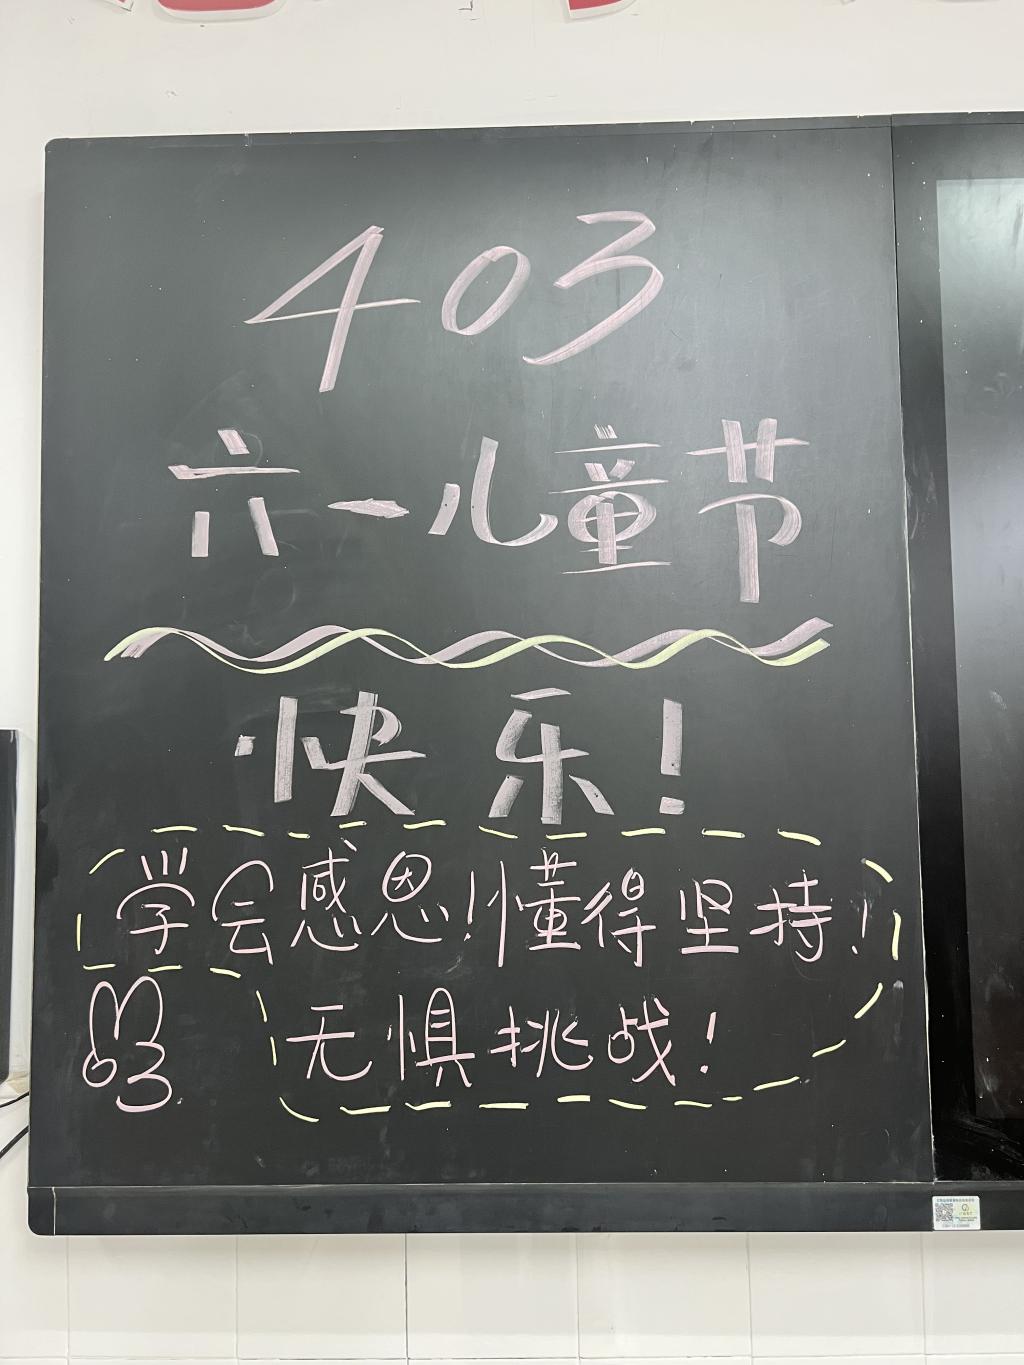 403
六一儿童节
快乐!
学会感恩!懂得坚持!
无惧挑战!